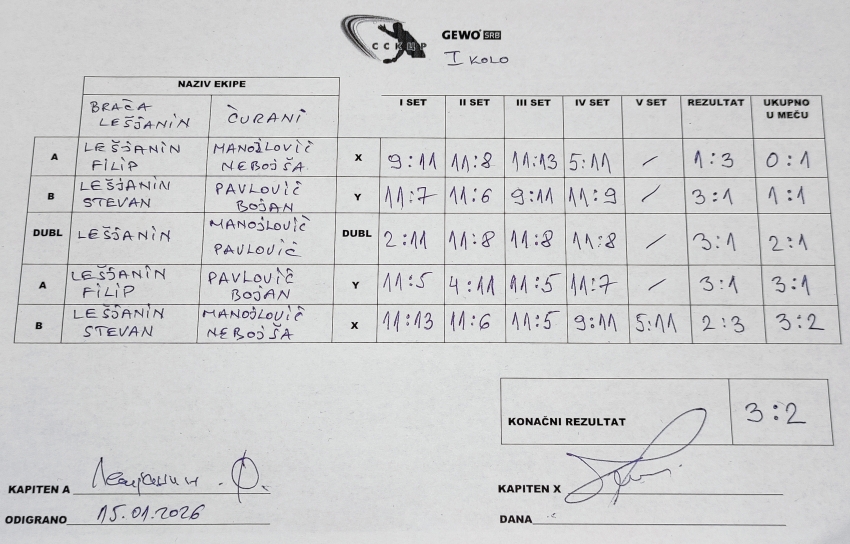 ССКЦР
GEWO SRB
I KOLO
NAZIV EKIPE
BRAĆA LEŠJANIN ČURANI I SET II SET III SET IV SET V SET REZULTAT UKUPNO U MEČU
A LEŠJANIN FILIP MANOJLOVIĆ NEBOJŠA X 9:11 11:8 11:13 5:11 / 1:3 0:1
B LEŠJANIN STEVAN PAVLOVIĆ BOJAN Y 11:7 11:6 9:11 11:9 / 3:1 1:1
DUBL LEŠJANIN MANOJLOVIĆ PAVLOVIĆ DUBL 2:11 11:8 11:8 11:8 / 3:1 2:1
A LEŠJANIN FILIP PAVLOVIĆ BOJAN Y 11:5 4:11 11:5 11:7 / 3:1 3:1
B LEŠJANIN STEVAN MANOJLOVIĆ NEBOJŠA X 11:13 11:6 11:5 9:11 5:11 2:3 3:2
KONAČNI REZULTAT 3:2
KAPITEN A
KAPITEN X
ODIGRANO 15.01.2026
DANA